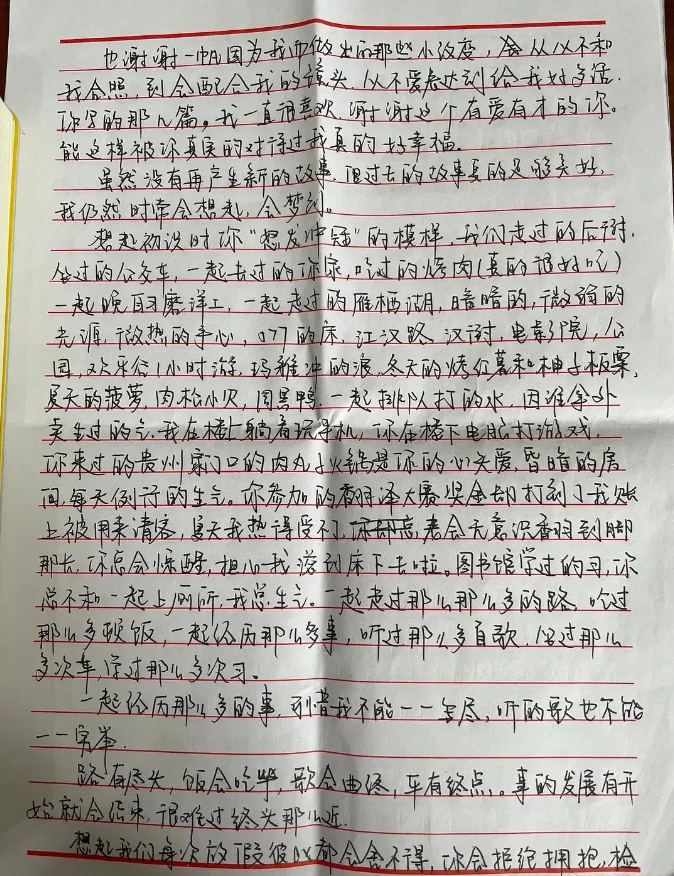 也谢谢一帆因为我而做出的那些小改变，会从从不和
我合照，到会配合我的镜头，从不爱表达到给我好多话.
你写的那几篇。我一直很喜欢，谢谢这个有爱有才的你。
能这样被你真实的对待过我真的好幸福.
虽然没有再产生新的故事，但过去的故事真的足够美好，
我仍然时常会想起，会梦到.
想起初次时你“想发冲冠”的模样，我们走过的后街，
坐过的公交车，一起去过的你家，吃过的烤肉(真的很好吃)
一起晚自习磨洋工，一起走过的雁栖湖，暗暗的，微弱的
光源，微热的手心，077的床，江汉路，汉街，电影院，公
园，欢乐谷1小时游，玛雅冲的浪，冬天的烤红薯和柚子板栗，
夏天的菠萝，肉松小贝，周黑鸭，一起排队打的水，因谁拿外
卖生过的气.我在楼上躺着玩手机，你在楼下电脑打游戏，
你来过的贵州家门口的肉丸子火锅是你的心头爱，昏暗的房
间，每天例行的生气。你参加的翻译大赛奖金却打到了我账
上被用来请客，夏天我热得受不了，老会无意识看到脚
那长，你总会惊醒，担心我滚到床下去啦。图书馆学过的习，你
总不和一起上厕所，我总生气.一起走过那么那么多的路，吃过
那么多顿饭，一起经历那么多事，听过那么多首歌，坐过那么
多次车，学过那么多次习。
一起经历那么多的事，到昔我不能一一写尽，听的歌也不能
一一穷举.
路有尽头，饭会吃毕，歌会曲终，车有终点.事的发展有开
始就会结束，很难过终头那么近.
想起我们每次放假彼此都会舍不得，你会拒绝拥抱，检